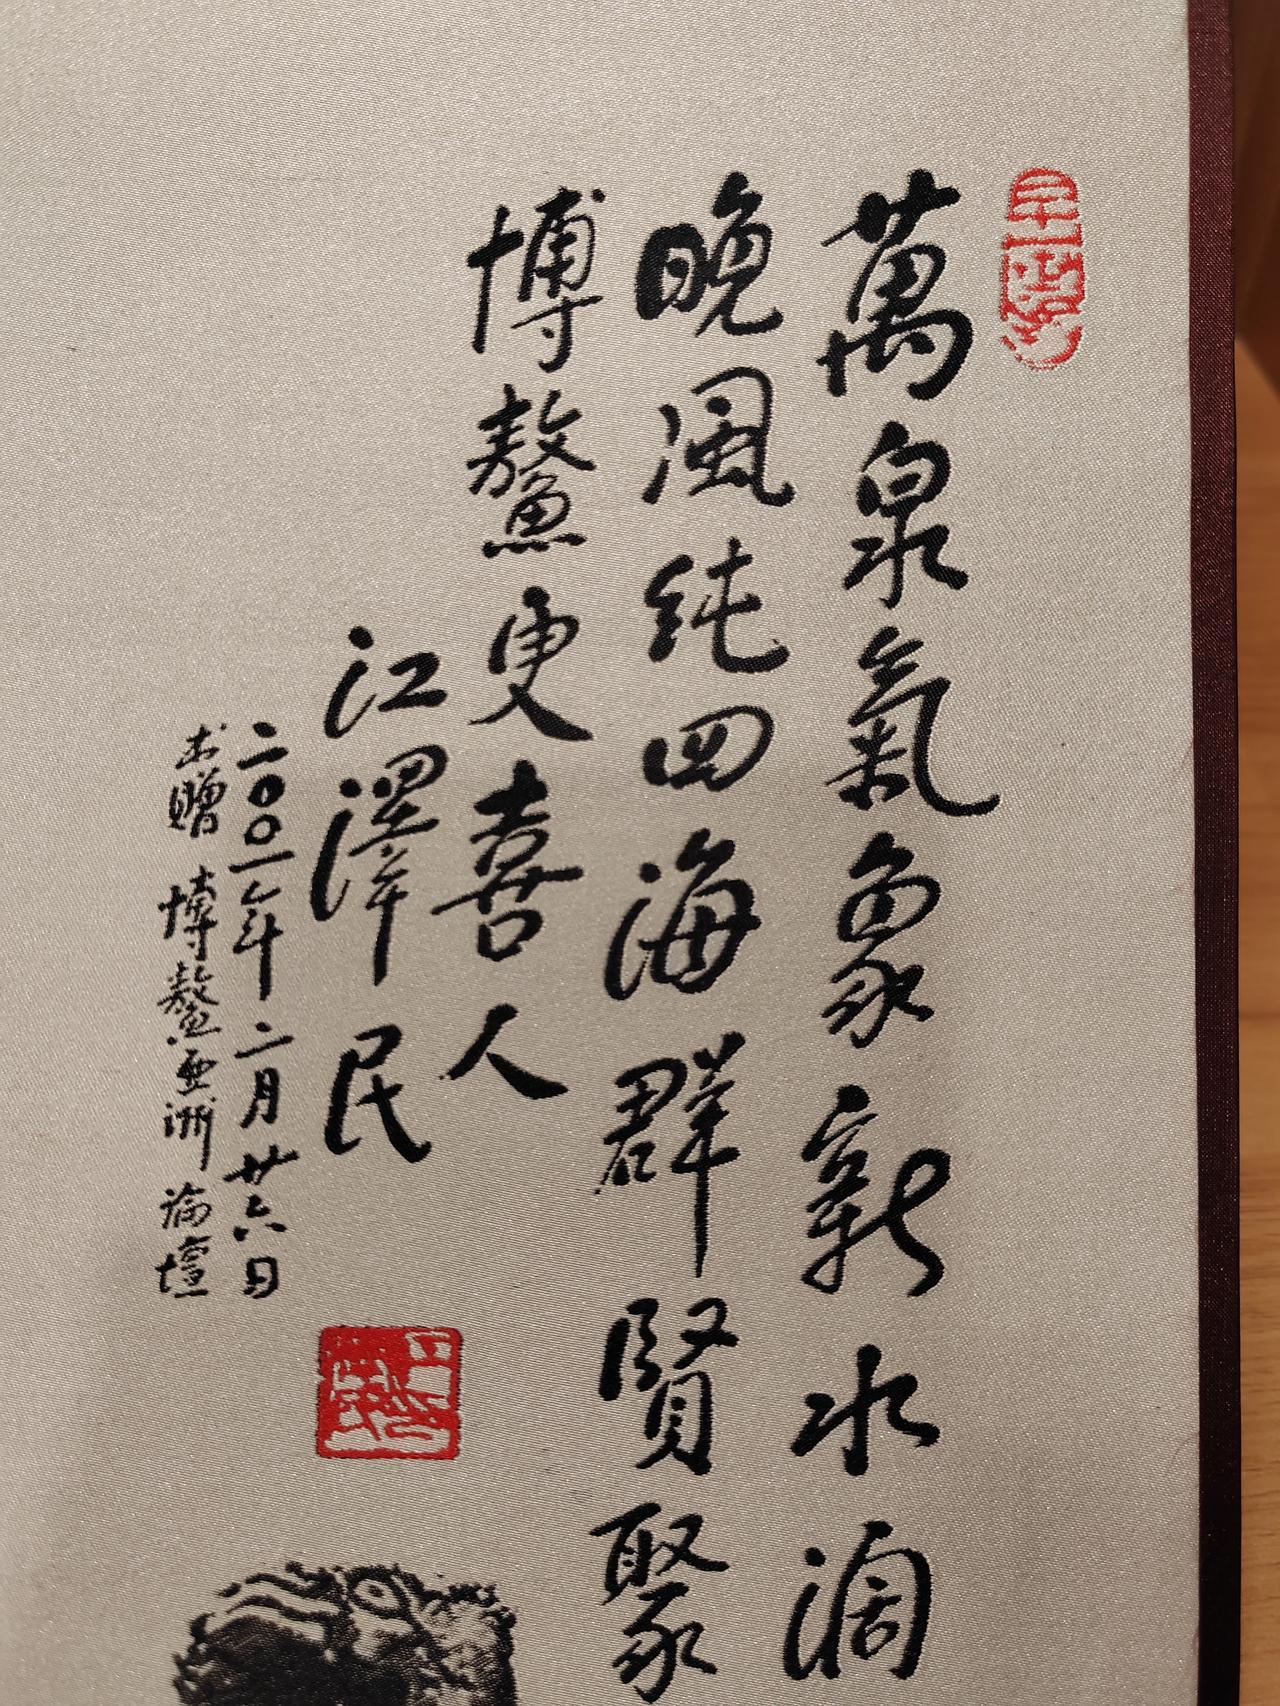 萬泉氣象新水濶
晚風純四海群賢聚
博鰲更喜人
江澤民
二〇〇一年二月廿六日
书贈博鰲亞洲論壇